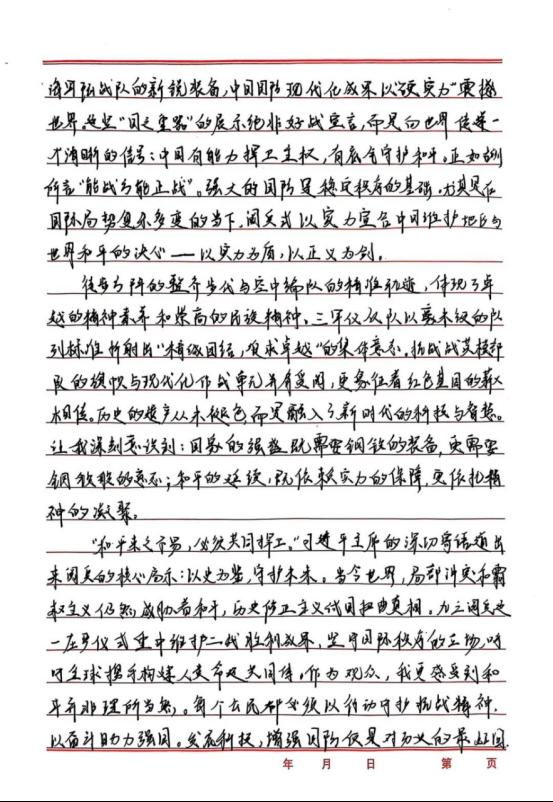 海军陆战队的新锐装备，中国国防现代化成果以“硬实力”震撼
世界。这些“国之重器”的展示绝非好战宣言，而是向世界传递一
个清晰的信号：中国有能力捍卫主权，有底气守护和平。正如
所言“能战方能止战”。强大的国防是稳定秩序的基础。尤其是在
国际局势复杂多变的当下，阅兵式以实力宣告中国维护地区与
世界和平的决心——以实力为盾，以正义为剑。
徒步方阵的整齐步伐与空中编队的精准轨迹，体现了卓
越的精神素养和崇高的民族精神，三军仪仗队以毫米级的队
列标准折射出“精诚团结，追求卓越”的集体意志，抗战英模部
队的旗帜与现代化作战单元并肩受阅，更象征着红色基因的薪火
相传。历史的硝烟从未褪色，而是融入了新时代的科技与智慧。
让我深刻意识到：国家的强盛既需要钢铁的装备，更需要
钢铁般的意志；和平的延续，既依赖实力的保障，更依托精
神的凝聚。
“和平来之不易，必须共同捍卫。”习近平主席的深切寄语道出
来阅兵的核心启示：以史为鉴，守护未来。当今世界，局部冲突和霸
权主义仍然威胁着和平，历史修正主义试图扭曲真相。九三阅兵是
一庄严仪式重申维护二战胜利成果、坚守国际秩序的立场，呼
吁全球携手构建人类命运共同体。作为观众，我更感受到和
平并非理所当然。每个公民都必须以行动守护抗战精神，
以奋斗助力强国。发展科技，增强国防仅是对历史的最好回
年 月 日 第 页